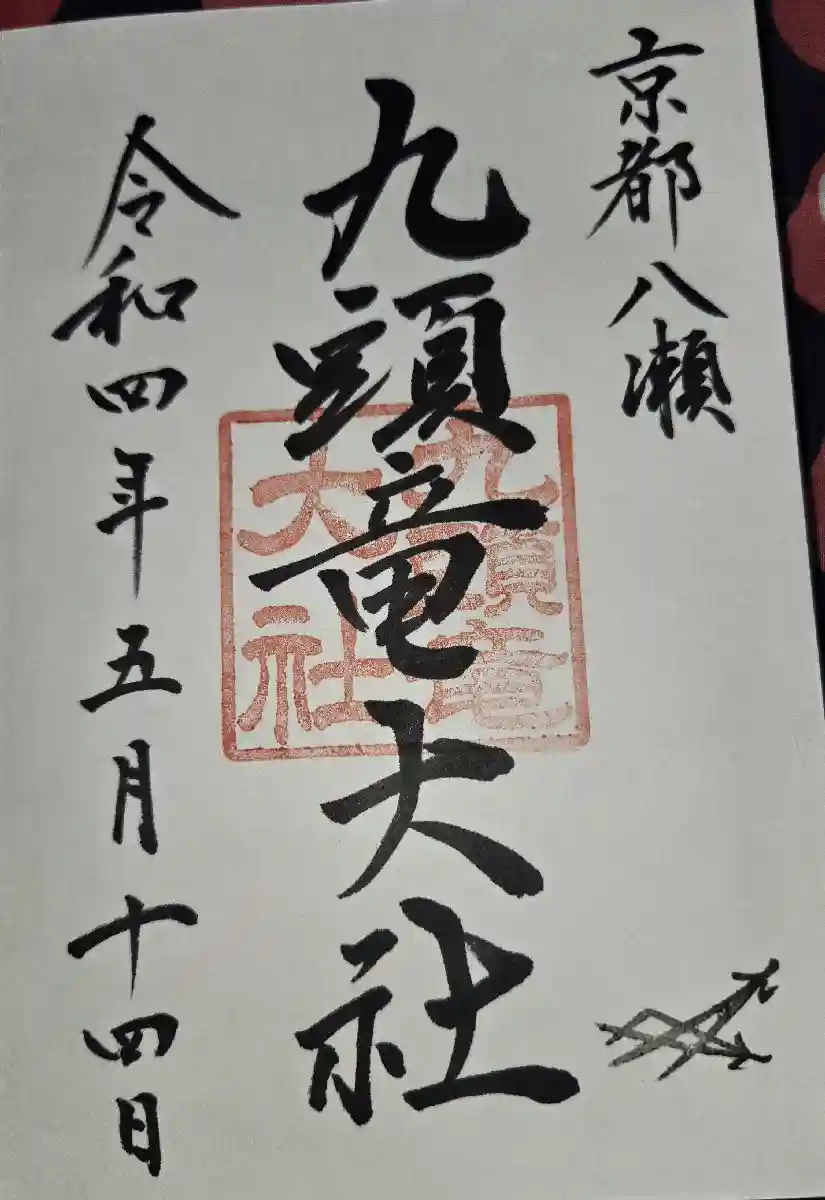 京都八瀬
九頭竜大社
九頭竜
大社
令和四年五月十四日